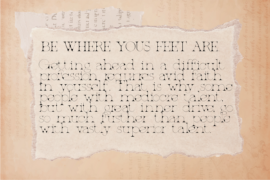 BE WHERE YOUS FEET ARE
Getting ahead in a difficult
profession requires avid faith
in yourself. That is why some
people with mediocre talent,
but with great inner drive go
so much further than people
with vastly superior talent."